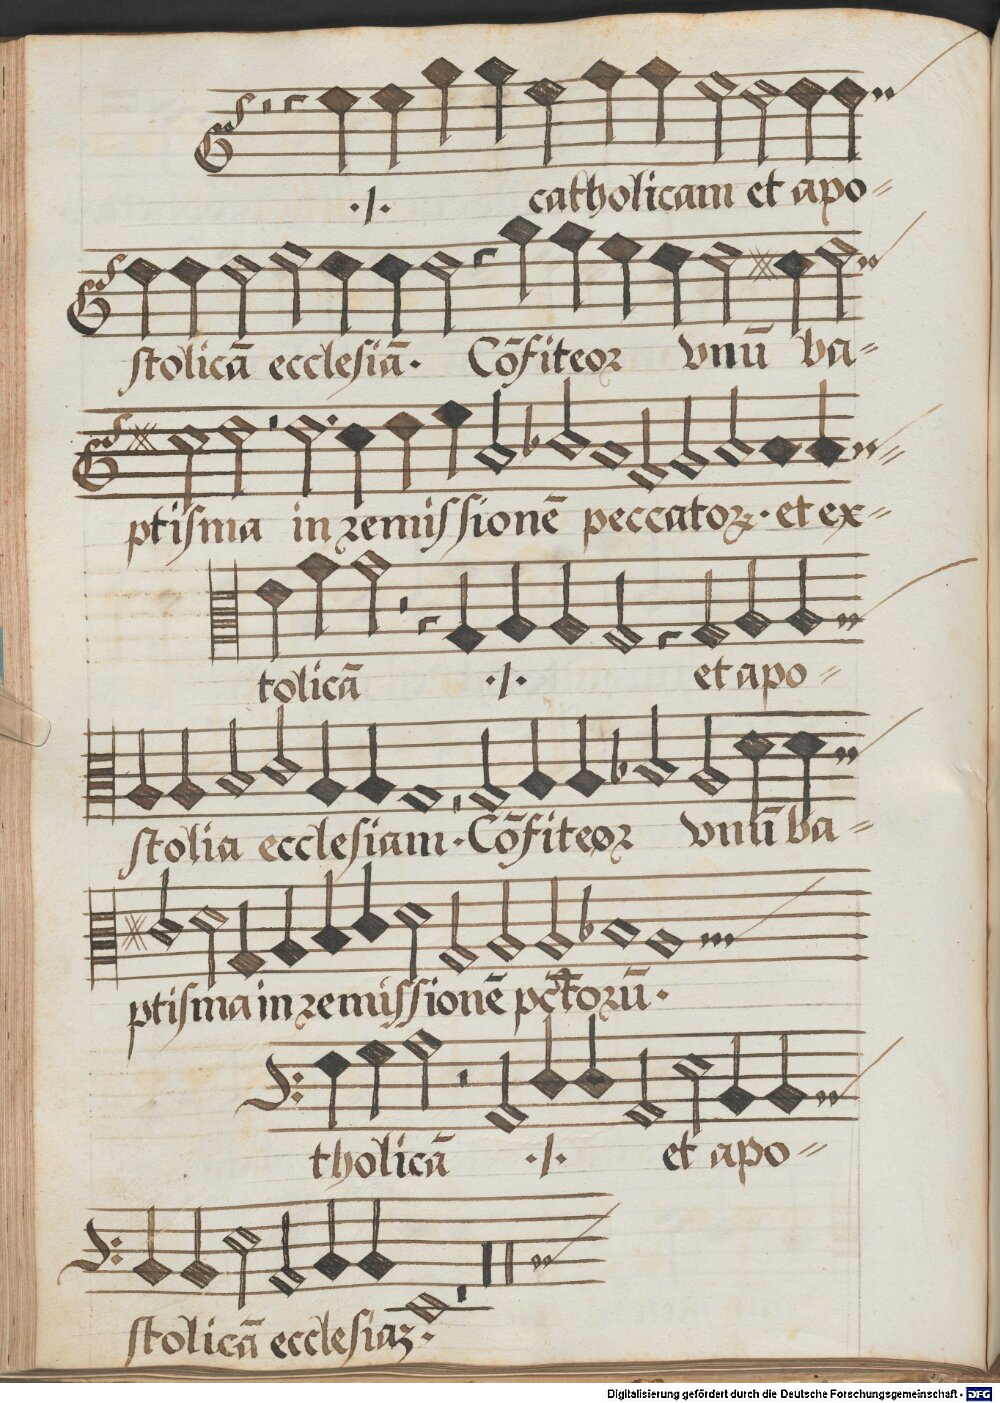 ·/· catholicam et apo⸗
stolicā ecclesiā· Cōfiteor vnū ba⸗
ptisma in remissionē peccatoꝝ· et ex⸗
tolicā ·/· et apo⸗
stolia ecclesiam· Cōfiteor vnū ba⸗
ptisma in remissionē pctorū·
tholicā ·/· et apo⸗
stolicā ecclesiaz·
Digitalisierung gefördert durch die Deutsche Forschungsgemeinschaft - DFG